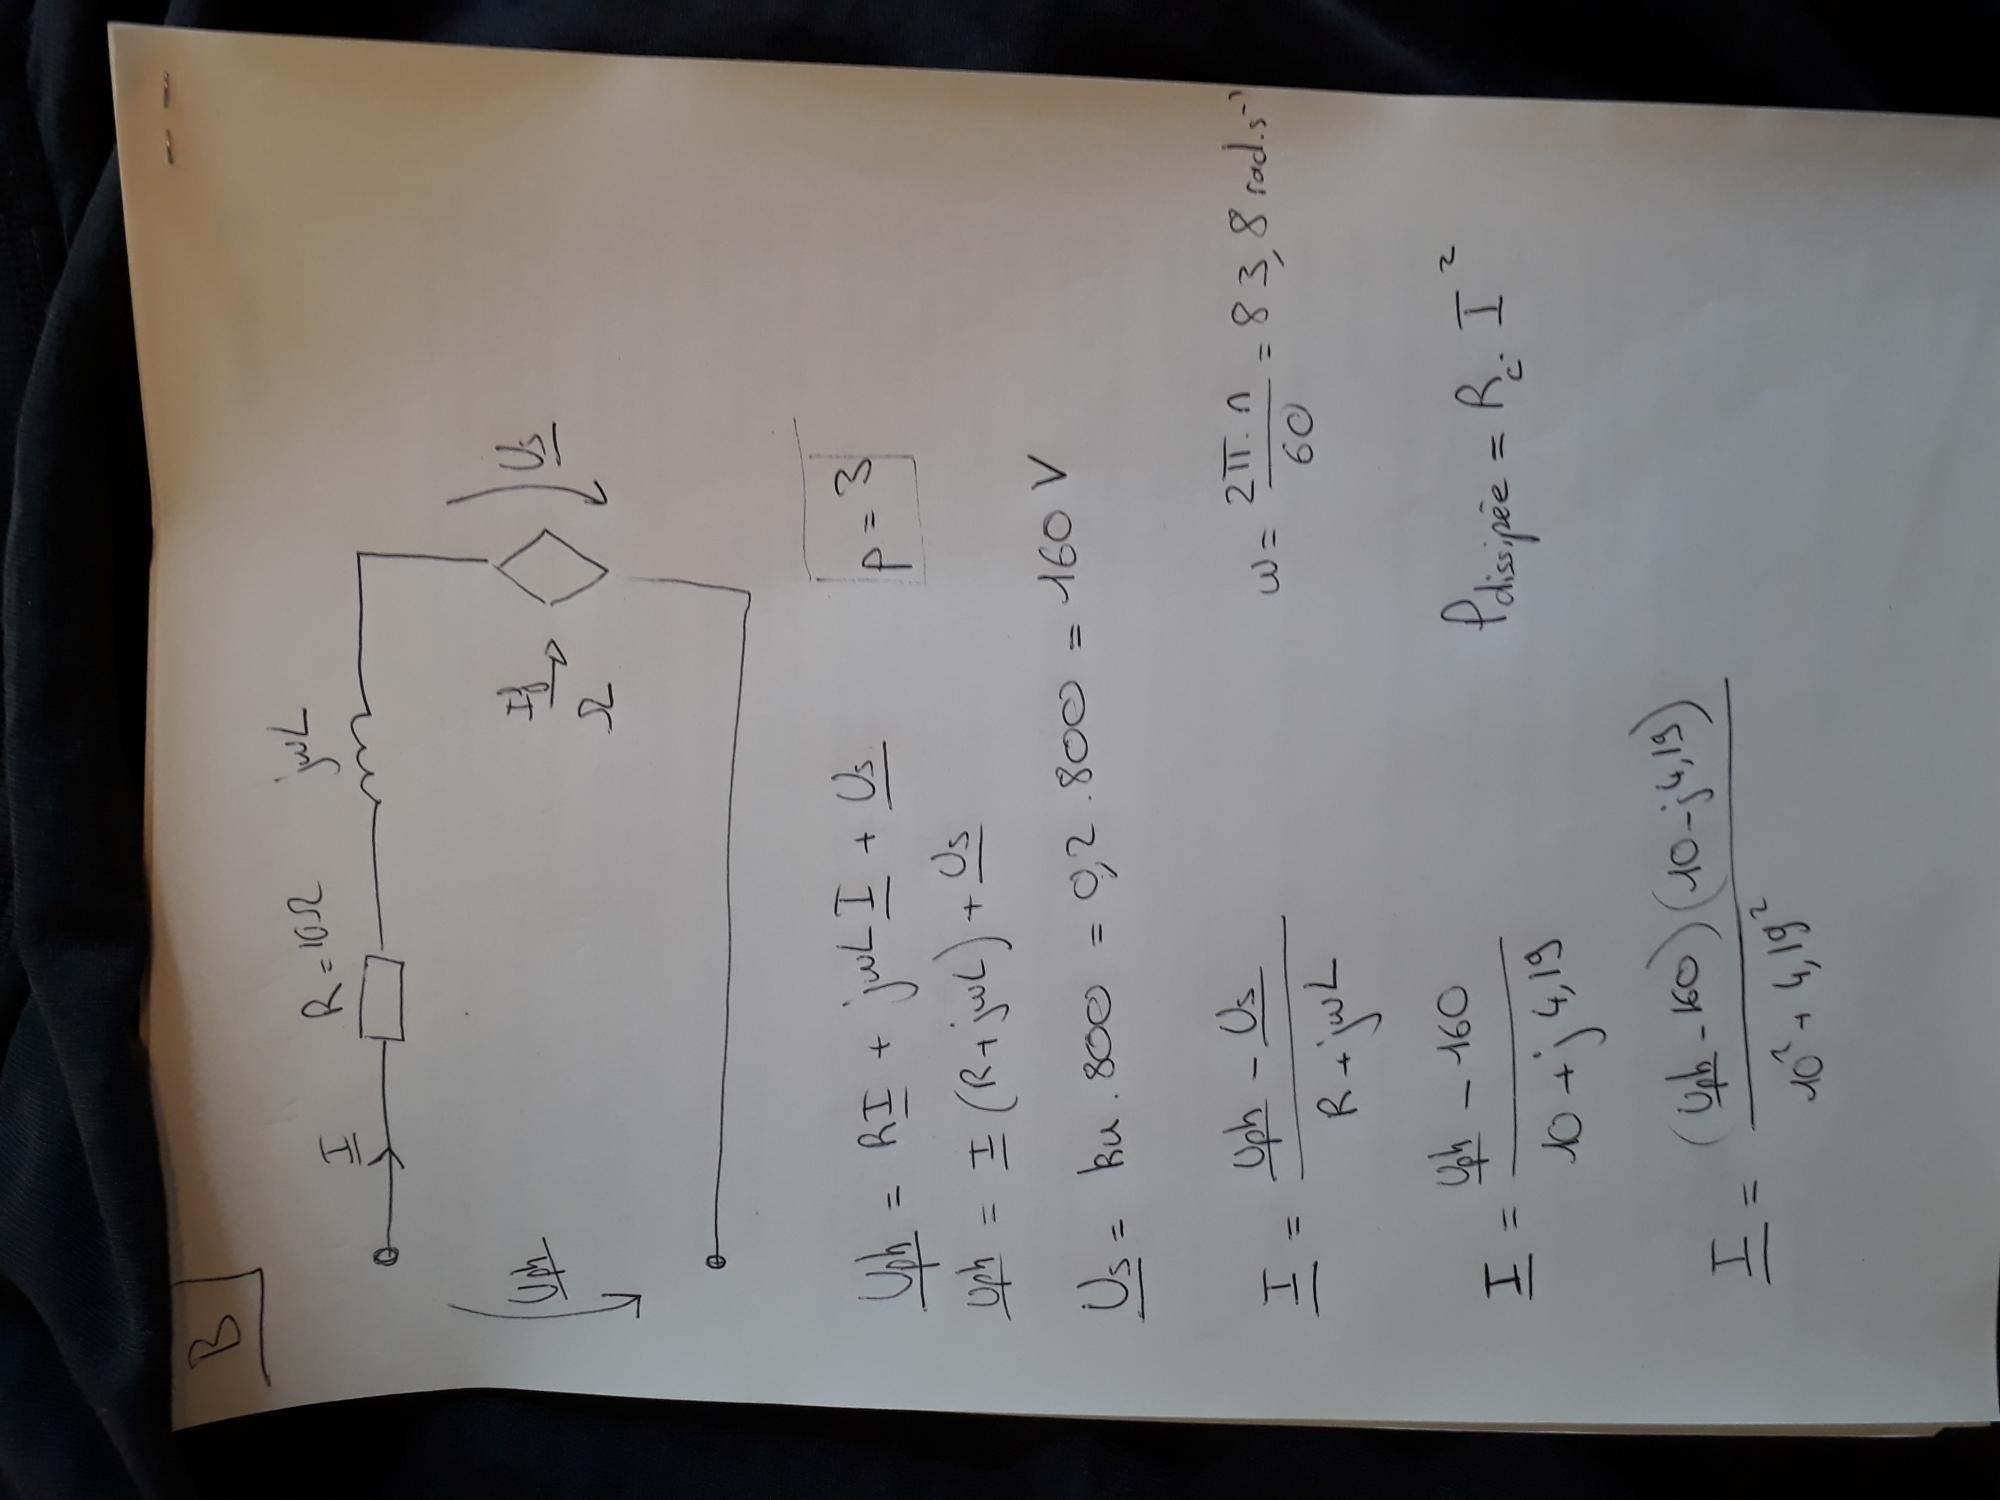 B
R=10Ω jωL
I
Uph
Us
Ω
Uph = RI + jωLI + Us
p = 3
Uph = I (R+jωL) + Us
Us = ku . 800 = 0,2 . 800 = 160 V
I = (Uph - Us) / (R + jωL)
ω = 2π.n / 60 = 83,8 rad.s⁻¹
I = (Uph - 160) / (10 + j4,19)
Pdissipée = R . I²
I = (Uph - 160)(10 - j4,19) / (10² + 4,19²)